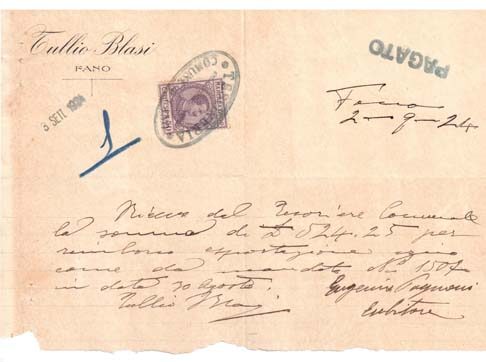 Tullio Blasi
FANO
PAGATO
3 SET. 1924
TESORERIA
COMUNALE
1
Fano
2-9-24
Ricevo dal Tesoriere Comunale
la somma di £ 524.25 per
rimborso esportazione
come da mandato N. 1507
in data 30 Agosto.
Tullio Blasi
Eugenio